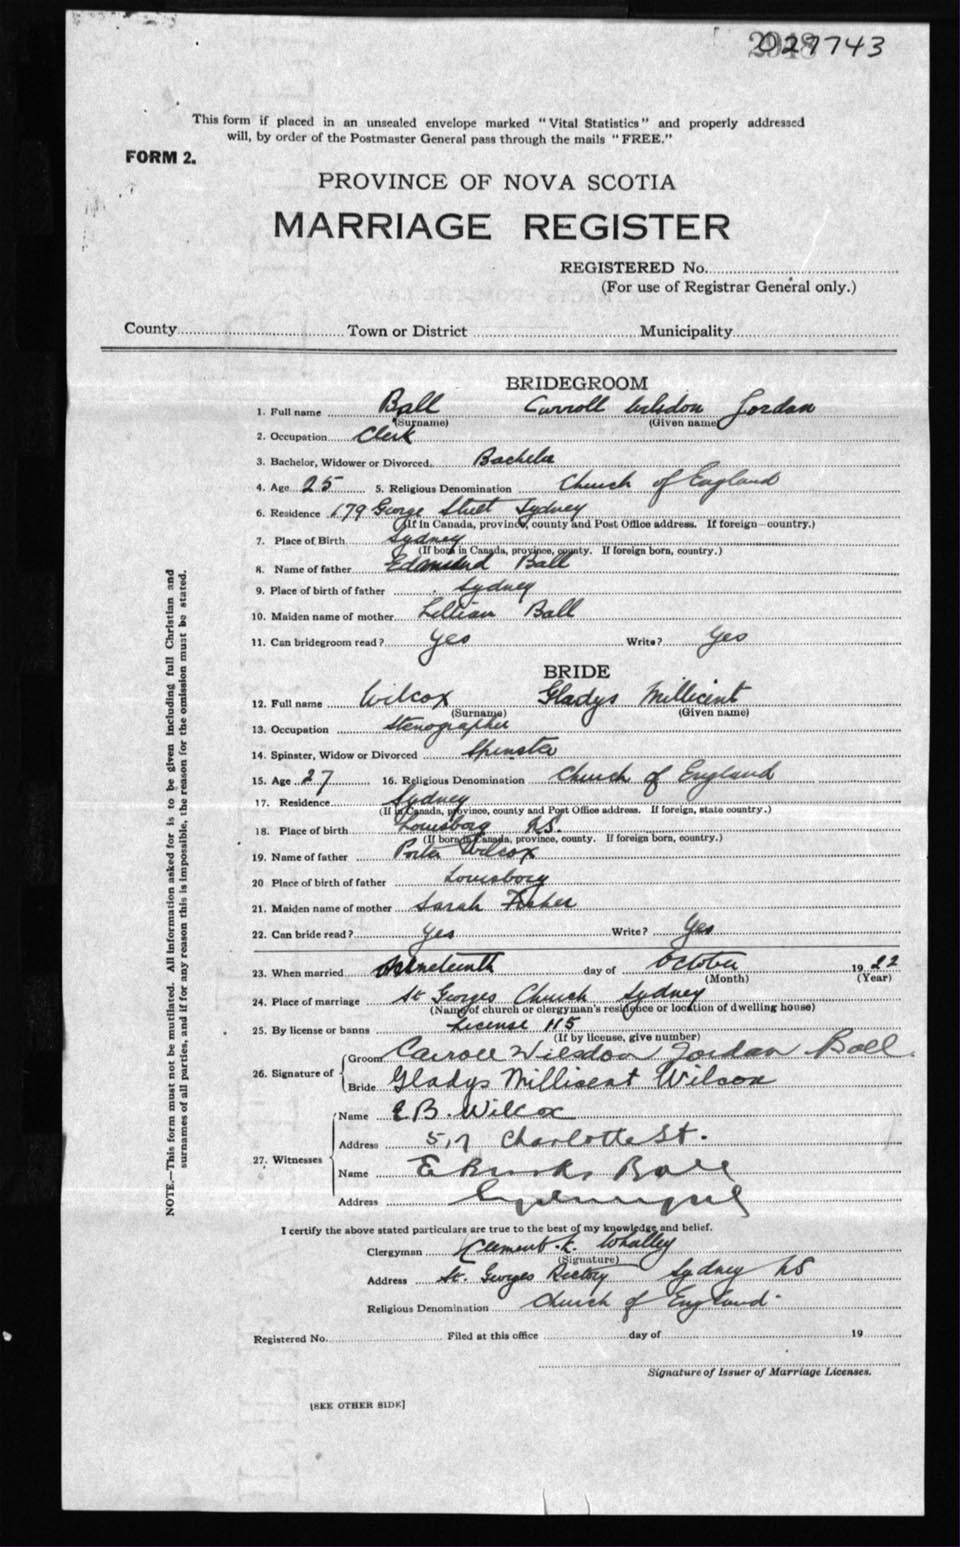 027743
This form if placed in an unsealed envelope marked "Vital Statistics" and properly addressed
will, by order of the Postmaster General pass through the mails "FREE."
FORM 2.
PROVINCE OF NOVA SCOTIA
MARRIAGE REGISTER
REGISTERED No.
(For use of Registrar General only.)
County Town or District Municipality
BRIDEGROOM
1. Full name Ball Carroll Wilsdon Jordan
(Surname) (Given name)
2. Occupation Clerk
3. Bachelor, Widower or Divorced. Bachelor
4. Age 25 5. Religious Denomination Church of England
6. Residence 179 George Street Sydney
(If in Canada, province, county and Post Office address. If foreign—country.)
7. Place of Birth Sydney
(If born in Canada, province, county. If foreign born, country.)
8. Name of father Edmund Ball
9. Place of birth of father Sydney
10. Maiden name of mother Lillian Ball
11. Can bridegroom read? Yes Write? Yes
BRIDE
12. Full name Wilcox Gladys Millicent
(Surname) (Given name)
13. Occupation Stenographer
14. Spinster, Widow or Divorced Spinster
15. Age 27 16. Religious Denomination Church of England
17. Residence Sydney
(If in Canada, province, county and Post Office address. If foreign, state country.)
18. Place of birth Louisborg N.S.
(If born in Canada, province, county. If foreign born, country.)
19. Name of father Porter Wilcox
20 Place of birth of father Louisborg
21. Maiden name of mother Sarah
22. Can bride read? Yes Write? Yes
23. When married day of October 1922
(Month) (Year)
24. Place of marriage St Georges Church Sydney
(Name of church or clergyman's residence or location of dwelling house)
25. By license or banns License 115
(If by license, give number)
26. Signature of
Groom Carroll Wilsdon Jordan Ball.
Bride Gladys Millicent Wilcox
27. Witnesses
Name E.B. Wilcox
Address 517 Charlotte St.
Name E Ball
Address
I certify the above stated particulars are true to the best of my knowledge and belief.
Clergyman Clement. K. Whalley
(Signature)
Address St. Georges Rectory Sydney NS
Religious Denomination Church of England.
Registered No. Filed at this office day of 19
Signature of Issuer of Marriage Licenses.
[SEE OTHER SIDE]
NOTE.—This form must not be mutilated. All information asked for is to be given including full Christian and
surnames of all parties, and if for any reason this is impossible, the reason for the omission must be stated.